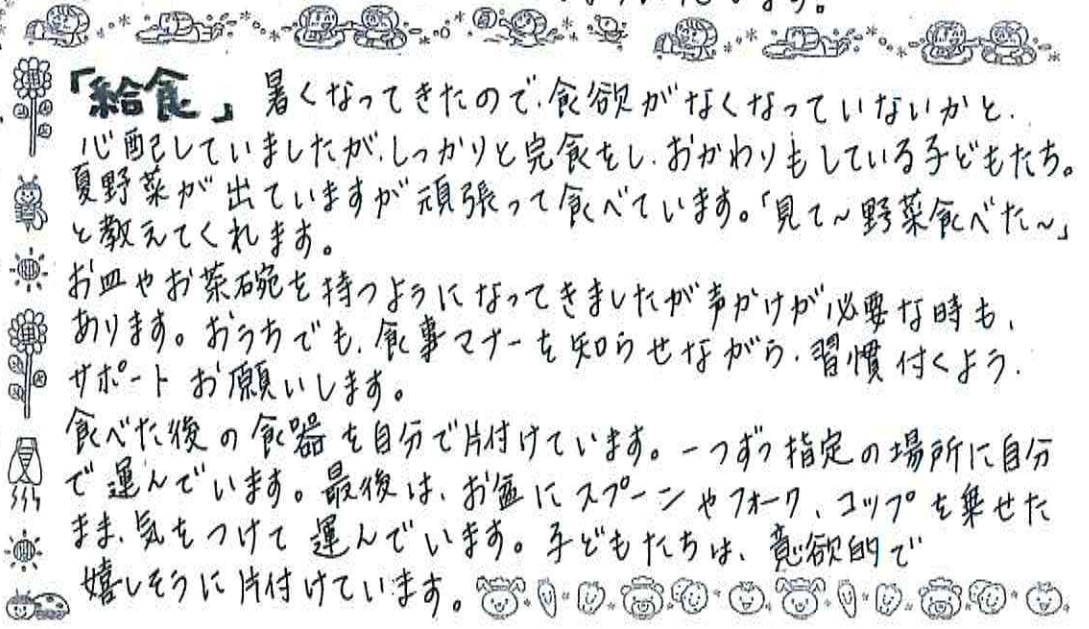 います。
「給食」 暑くなってきたので、食欲がなくなっていないかと、
心配していましたが、しっかりと完食をし、おかわりもしている子どもたち。
夏野菜が出ていますが頑張って食べています。「見て～野菜食べた～」
と教えてくれます。
お皿やお茶碗を持つようになってきましたが声かけが必要な時も、
あります。おうちでも、食事マナーを知らせながら、習慣付くよう、
サポートお願いします。
食べた後の食器を自分で片付けています。一つずつ指定の場所に自分
で運んでいます。最後は、お盆にスプーンやフォーク、コップを乗せた
まま、気をつけて運んでいます。子どもたちは、意欲的で
嬉しそうに片付けています。